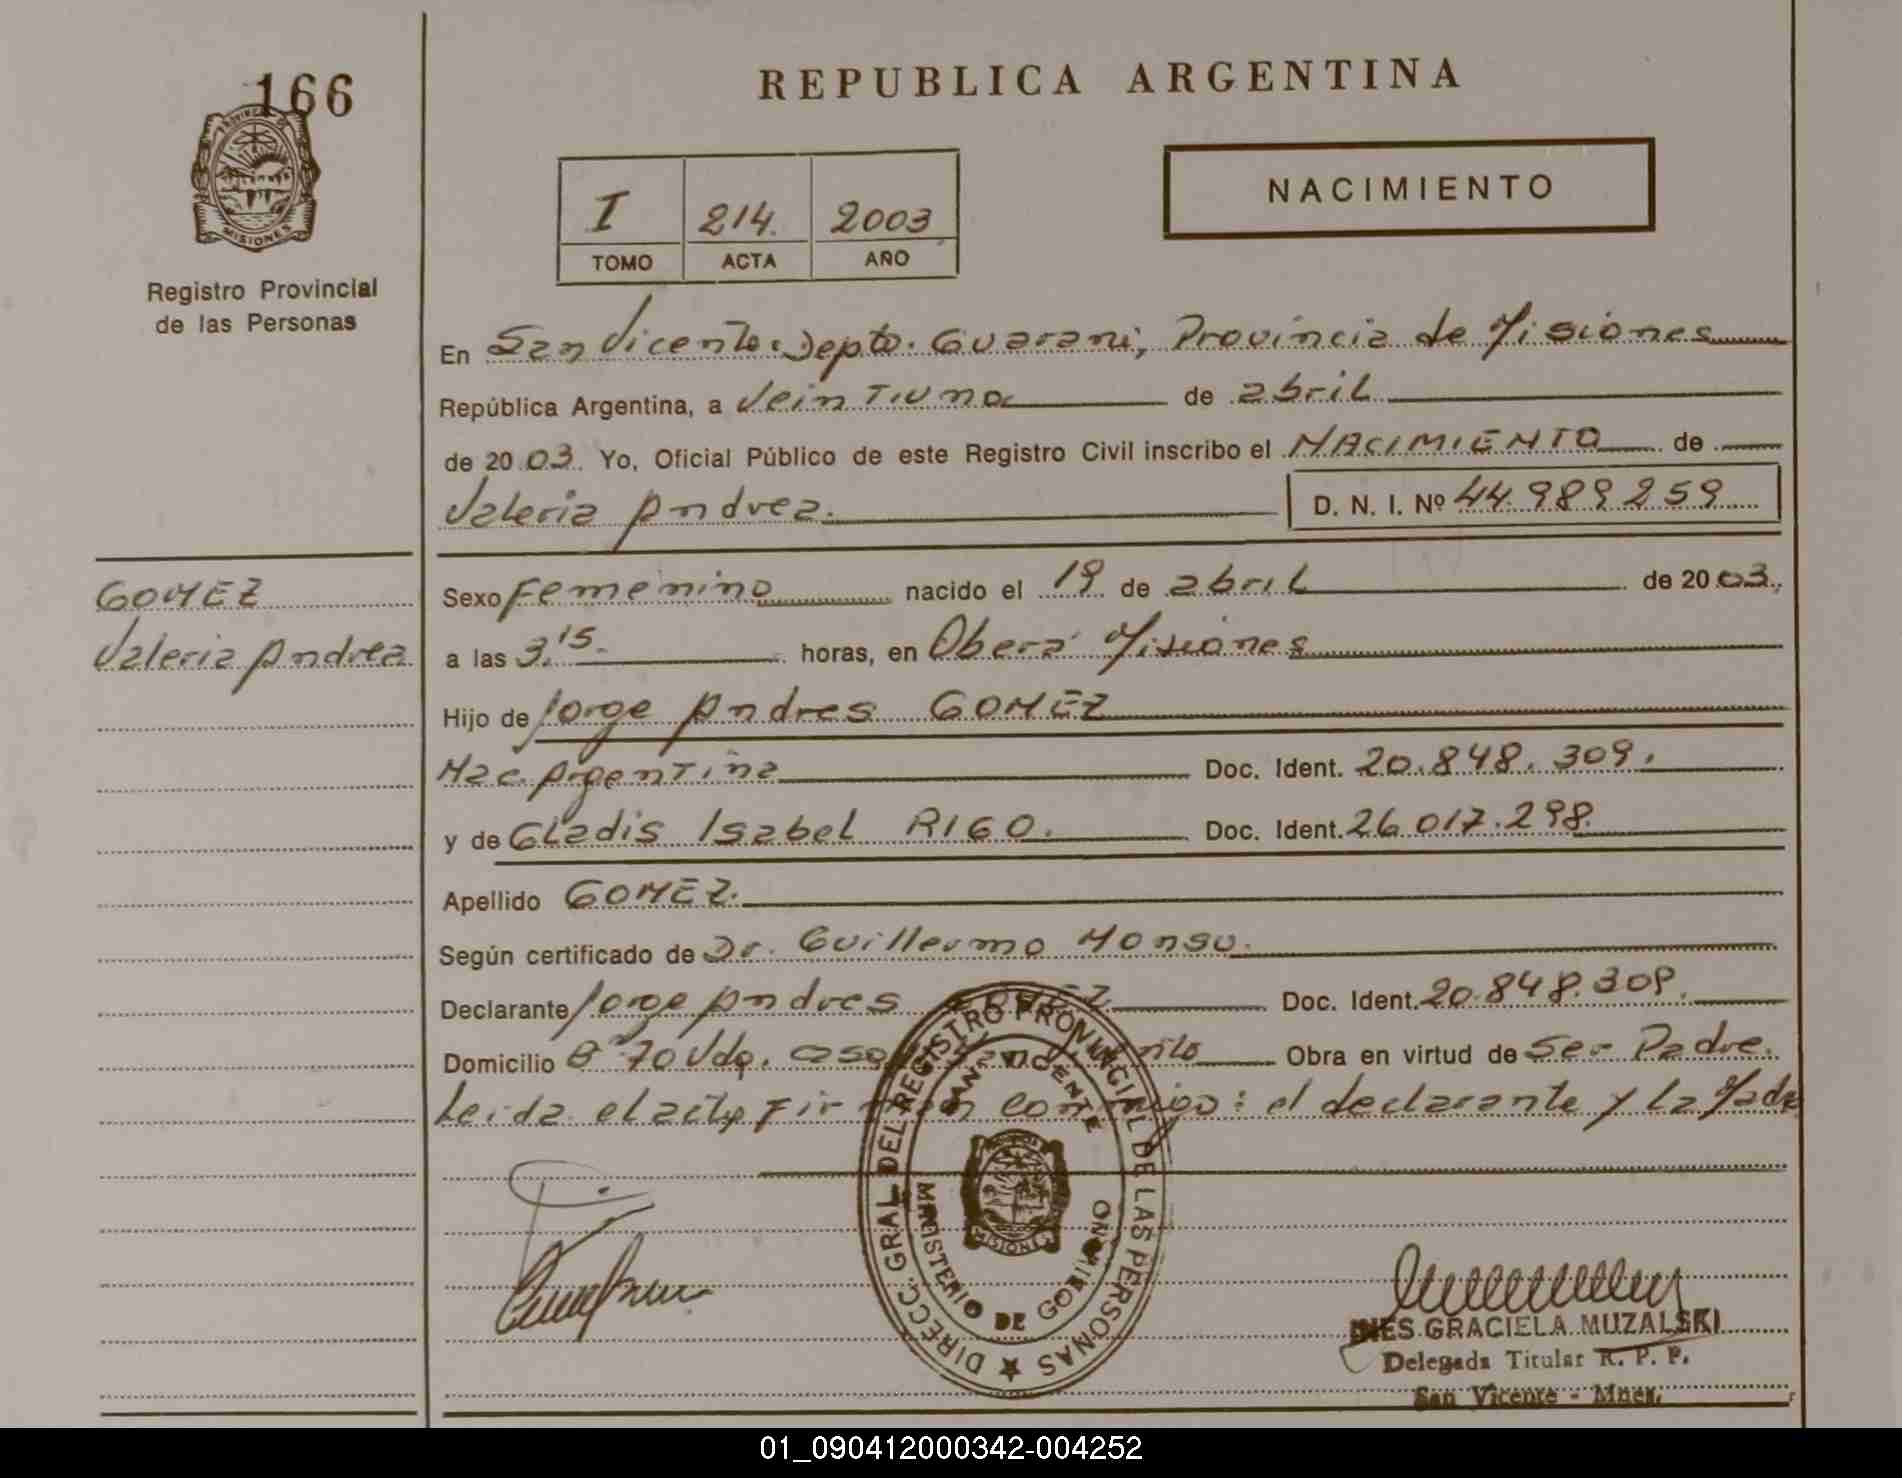 166
PROVINCIA DE
MISIONES
Registro Provincial
de las Personas
GOMEZ
Valeria Andrea
REPUBLICA ARGENTINA
I 214. 2003
TOMO ACTA AÑO
NACIMIENTO
En San Vicente. Depto. Guarani, Provincia de Misiones
República Argentina, a Veintiuno de abril
de 2003. Yo, Oficial Público de este Registro Civil inscribo el NACIMIENTO de
Valeria Andrea. D. N. I. Nº 44.989259
Sexo Femenino nacido el 19 de abril de 2003.
a las 3.15. horas, en Oberá Misiones
Hijo de Jorge Andres GOMEZ
Nac. Argentina Doc. Ident. 20.848.309.
y de Gladis Isabel RIGO. Doc. Ident. 26.017.298.
Apellido GOMEZ.
Según certificado de Dr. Guillermo
Declarante Jorge Andres GOMEZ Doc. Ident. 20.848.309.
Domicilio Bº 70 Vdas. casa Obra en virtud de Ser Padre.
Leida el acta, Firman conmigo: el declarante y La Madre
DIRECC. GRAL. DEL REGISTRO PROVINCIAL DE LAS PERSONAS
SAN VICENTE
MINISTERIO DE GOBIERNO
MISIONES
INES GRACIELA MUZALSKI
Delegada Titular R. P. P.
San Vicente - Mnes.
01_090412000342-004252